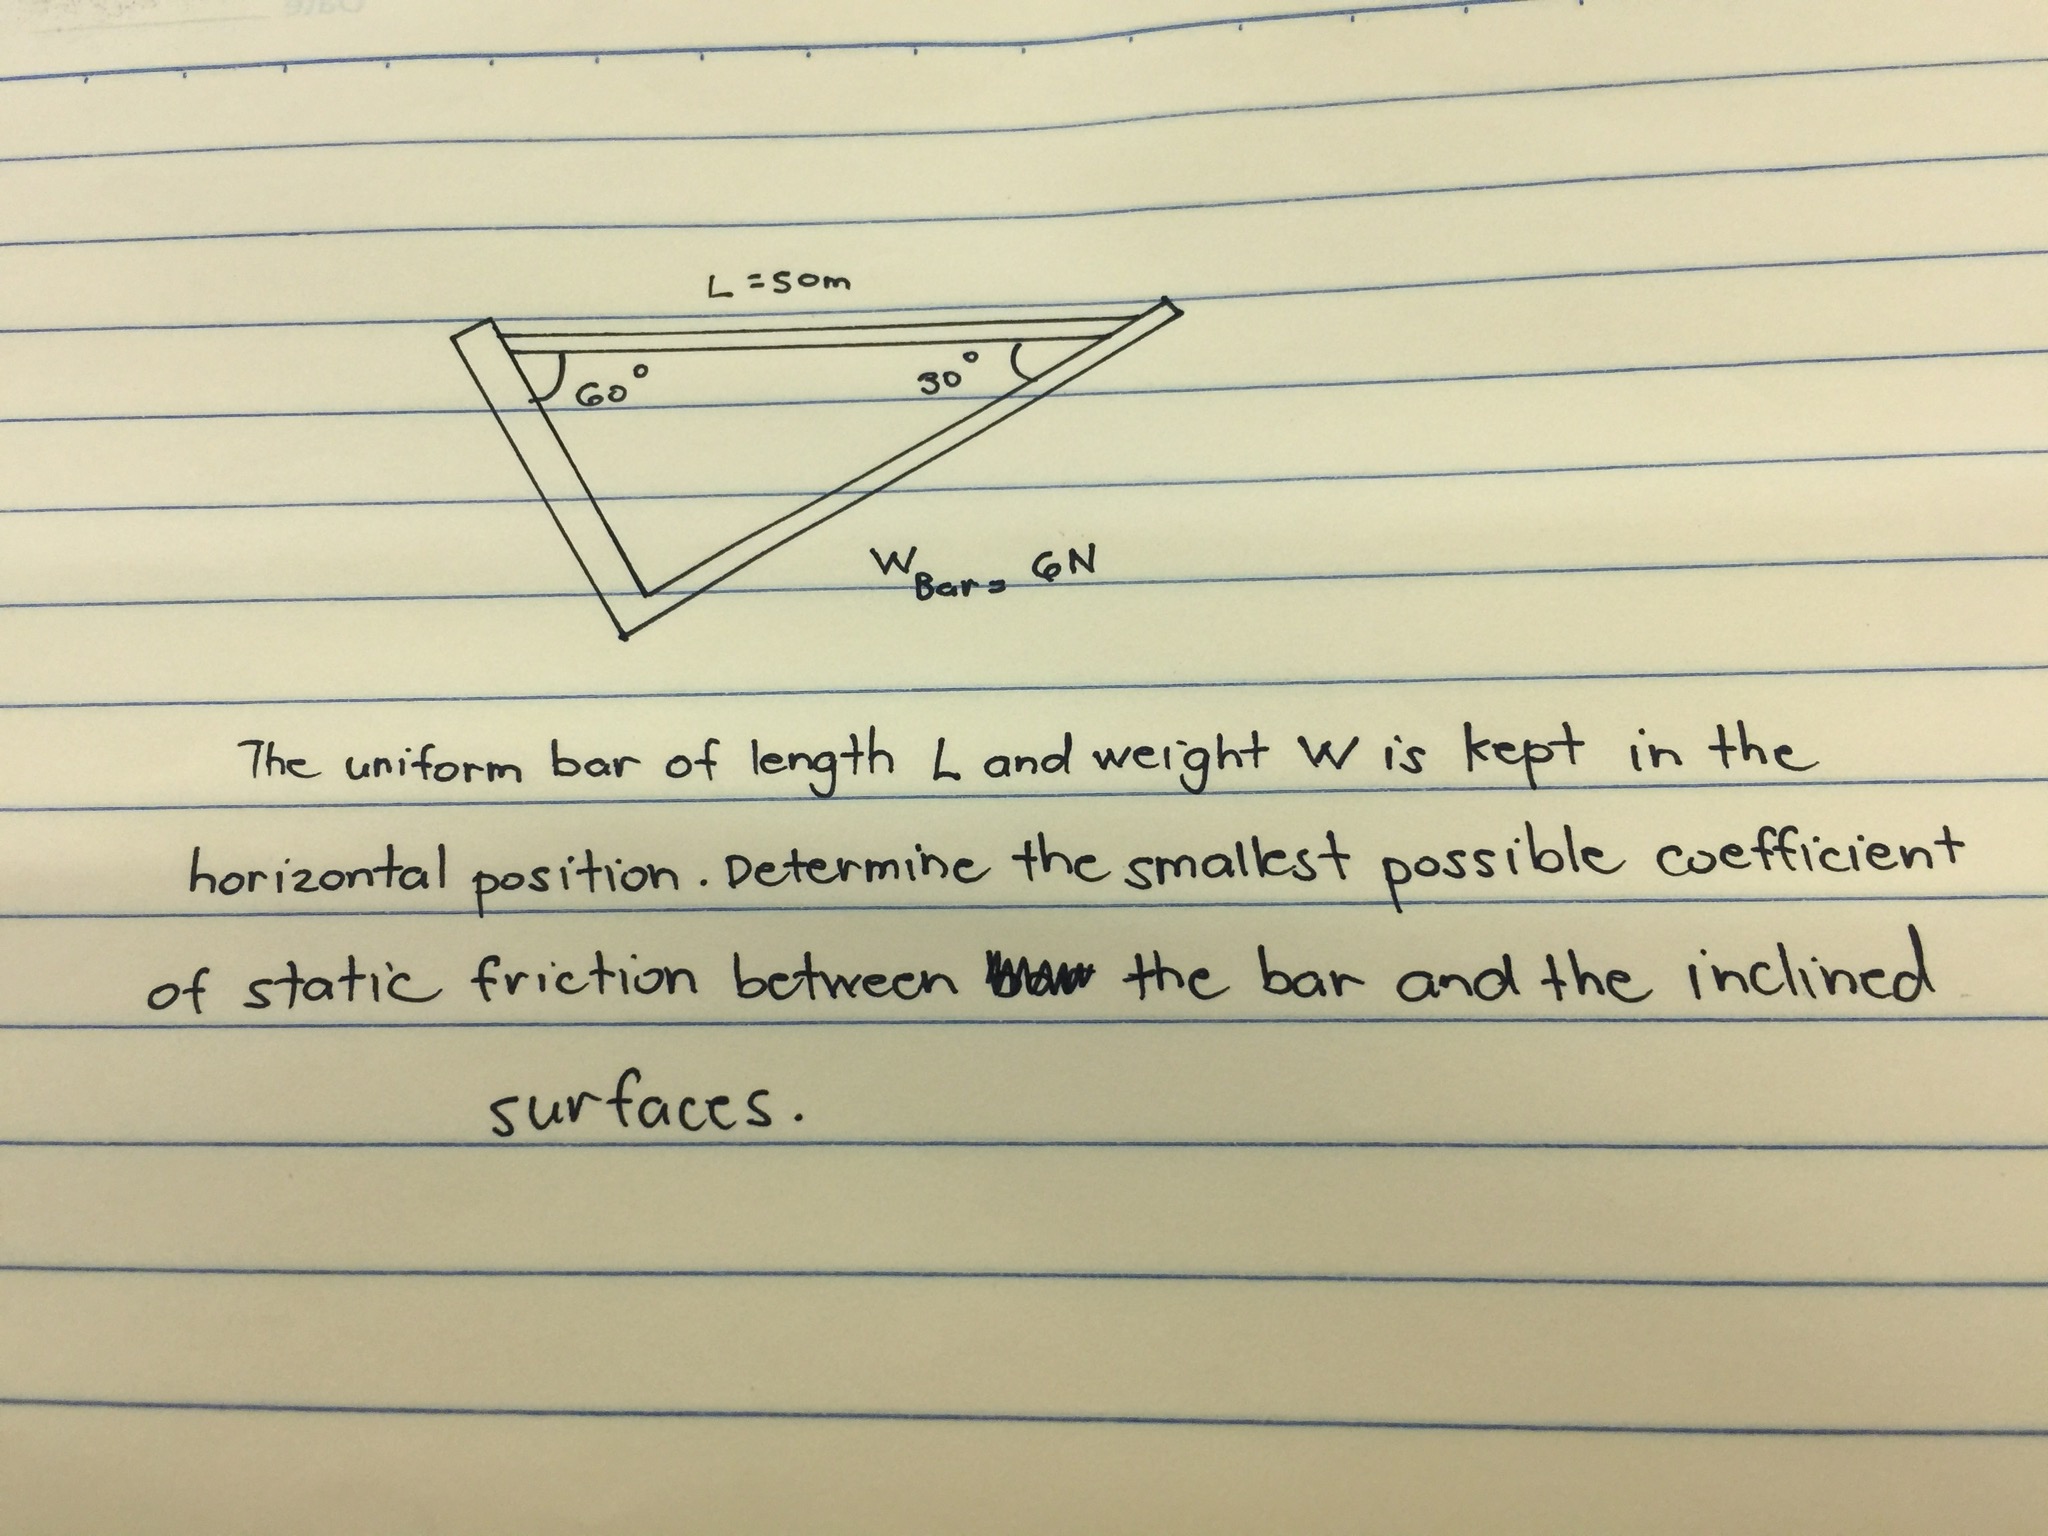 L = 50m
60°
30°
W Bar = 6N
The uniform bar of length L and weight W is kept in the
horizontal position. Determine the smallest possible coefficient
of static friction between the bar and the inclined
surfaces.